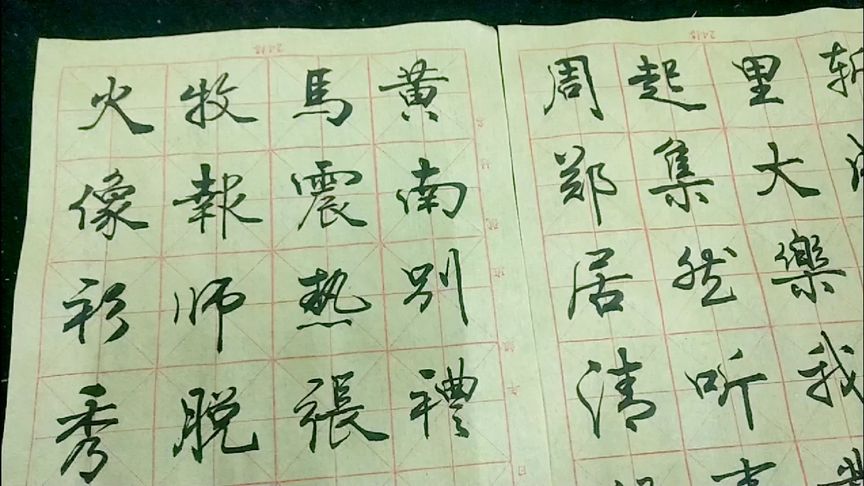 火牧馬黄
像報震南
衫师热别
秀脱張禮
周起里
郑集大
居然樂
清听我